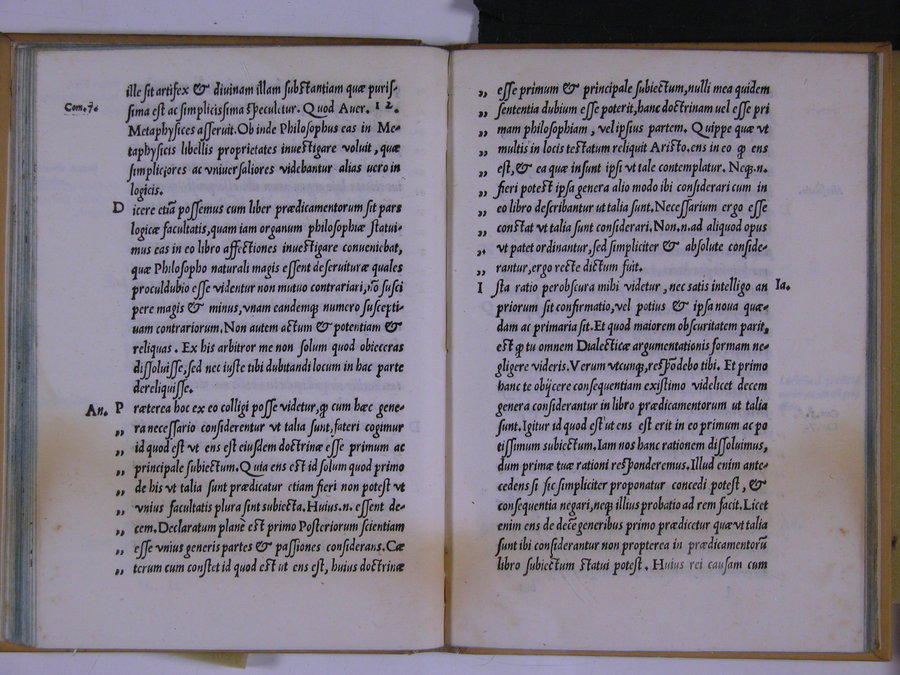 ille sit artifex & diuinam illam substantiam quæ puris-
Com. 7.
sima est ac simplicissima speculetur. Quod Auer. 12.
Metaphysices asseruit. Ob inde Philosophus eas in Me-
taphysicis libellis proprietates inuestigare voluit, quæ
simpliciores ac vniuersaliores videbantur alias uero in
logicis.
D icere etiã possemus cum liber prædicamentorum sit pars
logicæ facultatis, quam iam organum philosophiæ statui-
mus eas in eo libro affectiones inuestigare conueniebat,
quæ Philosopho naturali magis essent deseruituræ quales
proculdubio esse videntur non mutuo contrariari, nõ susci
pere magis & minus, vnam eandemq; numero suscepti-
uam contrariorum. Non autem actum & potentiam &
reliquas. Ex his arbitror me non solum quod obieceras
dissoluisse, sed nec iuste tibi dubitandi locum in hac parte
dereliquisse.
An. P ræterea hoc ex eo colligi posse videtur, ꝙ cum hæc gene-
„ ra necessario considerentur vt talia sunt, fateri cogimur
„ id quod est vt ens est eiusdem doctrinæ esse primum ac
„ principale subiectum. Quia ens est id solum quod primo
„ de his vt talia sunt prædicatur etiam fieri non potest vt
„ vnius facultatis plura sint subiecta. Huius.n. essent de-
„ cem. Declaratum planè est primo Posteriorum scientiam
„ esse vnius generis partes & passiones considerans. Cæ
„ terum cum constet id quod est ut ens est, huius doctrinæ
„ esse primum & principale subiectum, nulli mea quidem
„ sententia dubium esse poterit, hanc doctrinam uel esse pri
„ mam philosophiam, vel ipsius partem. Quippe quæ vt
„ multis in locis testatum reliquit Aristo. ens in eo ꝙ ens
„ est, & ea quæ insunt ipsi vt tale contemplatur. Neq;.n.
„ fieri potest ipsa genera alio modo ibi considerari cum in
„ eo libro describantur ut talia sunt. Necessarium ergo esse
„ constat vt talia sunt considerari. Non.n.ad aliquod opus
„ vt patet ordinantur, sed simpliciter & absolute conside-
„ rantur, ergo recte dictum fuit.
I sta ratio perobscura mihi videtur, nec satis intelligo an Ia.
priorum sit confirmatio, vel potius & ipsa noua quæ-
dam ac primaria sit. Et quod maiorem obscuritatem parit,
est ꝙ tu omnem Dialecticæ argumentationis formam ne-
gligere videris. Verum vtcunq;, respõdebo tibi. Et primo
hanc te obijcere consequentiam existimo videlicet decem
genera considerantur in libro prædicamentorum ut talia
sunt. Igitur id quod est ut ens est erit in eo primum ac po
tissimum subiectum. Iam nos hanc rationem dissoluimus,
dum primæ tuæ rationi responderemus. Illud enim ante-
cedens si sic simpliciter proponatur concedi potest, &
consequentia negari, neq; illius probatio ad rem facit. Licet
enim ens de decẽ generibus primo prædicetur quæ vt talia
sunt ibi considerantur non propterea in prædicamentorũ
libro subiectum statui potest. Huius rei causam cum